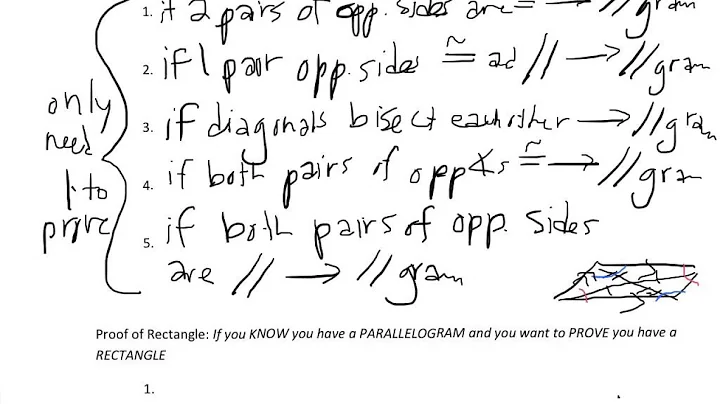 1. if 2 pairs of opp. sides are ≅ → //gram
2. if 1 pair opp. sides ≅ ad // → //gram
3. if diagonals bisect each other → //gram
4. if both pairs of opp ∡s ≅ → //gram
5. if both pairs of opp. sides
are // → //gram
only
need
1 to
prove
Proof of Rectangle: If you KNOW you have a PARALLELOGRAM and you want to PROVE you have a
RECTANGLE
1.